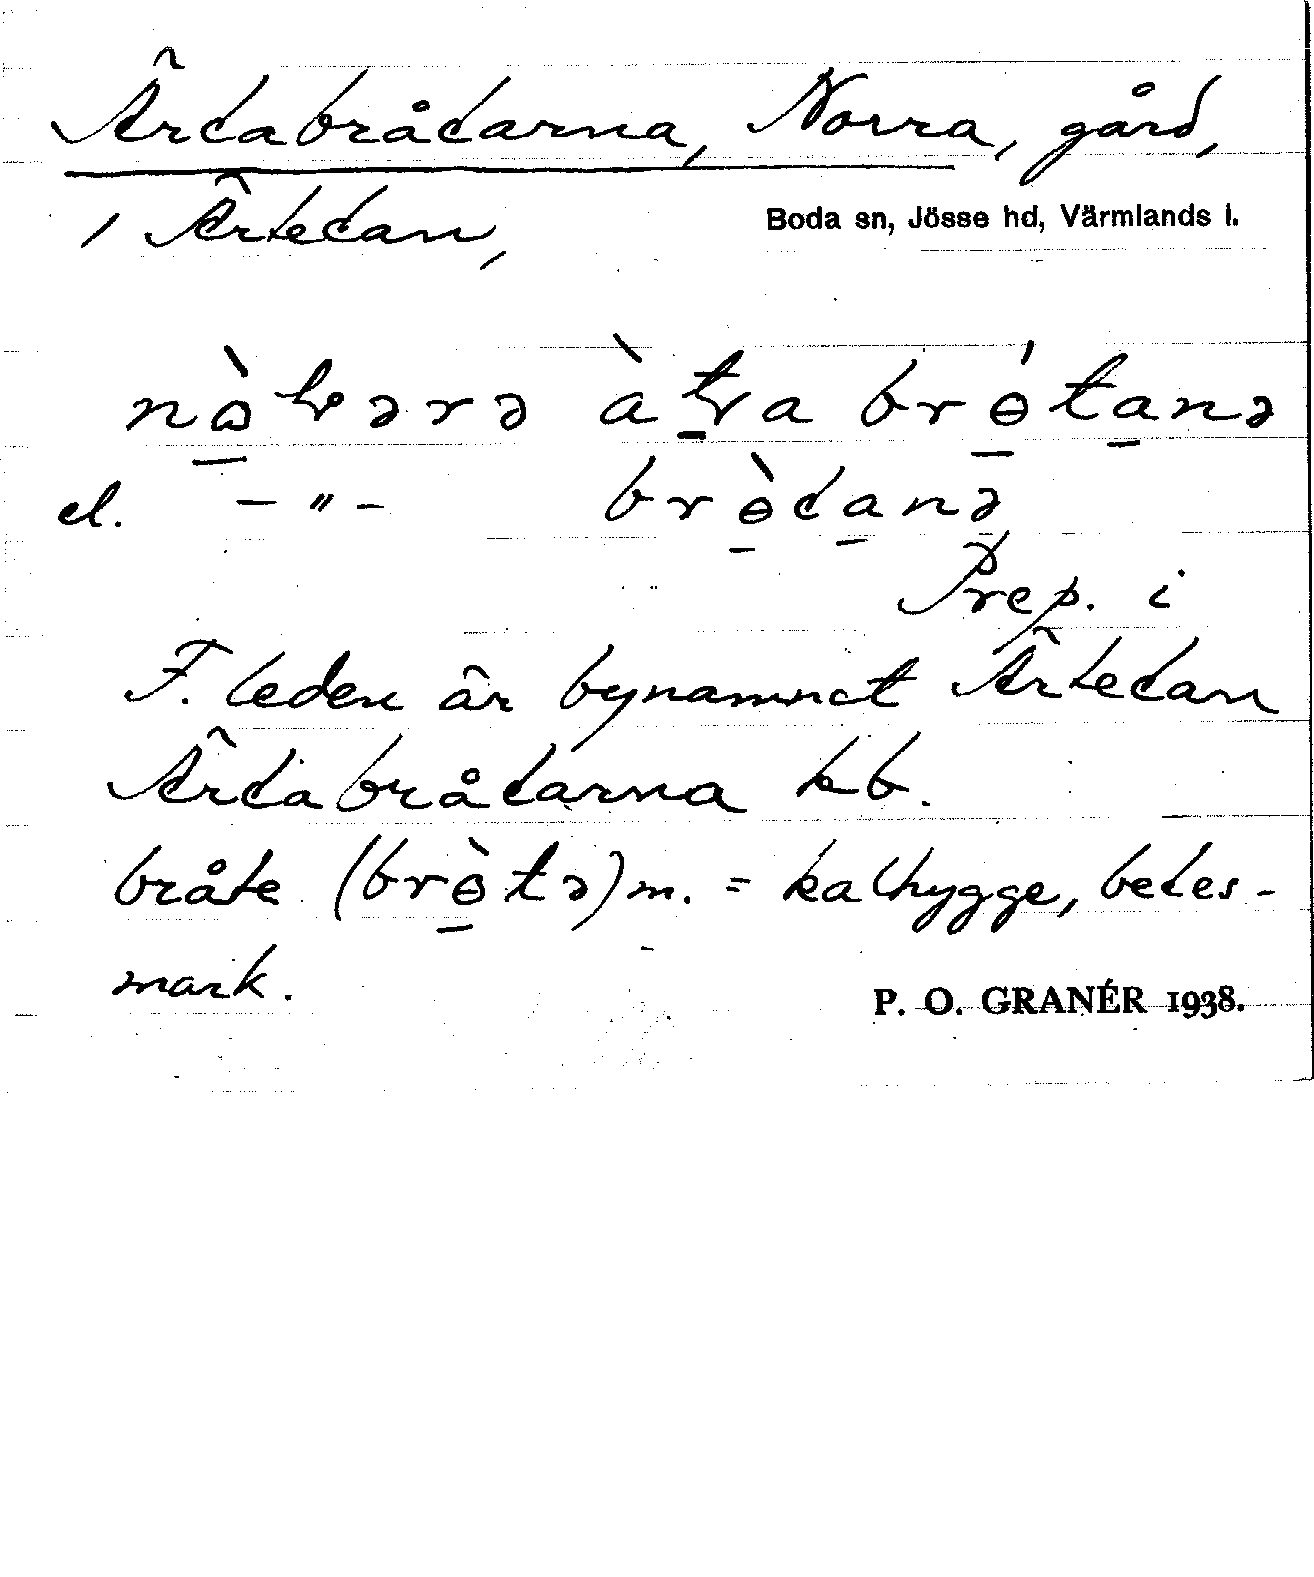 Ärtabråtarna, Norra, gård,
i Ärtetan,
Boda sn, Jösse hd, Värmlands l.
el. – " – brɵ̱̀ta̱nə
Prep. i
F. leden är bynamnet Ärtetan
Ärtabråtarna kb.
bråte (brɵ̱̀tə) m. = kalhygge, betes-
mark.
P. O. GRANÉR 1938.